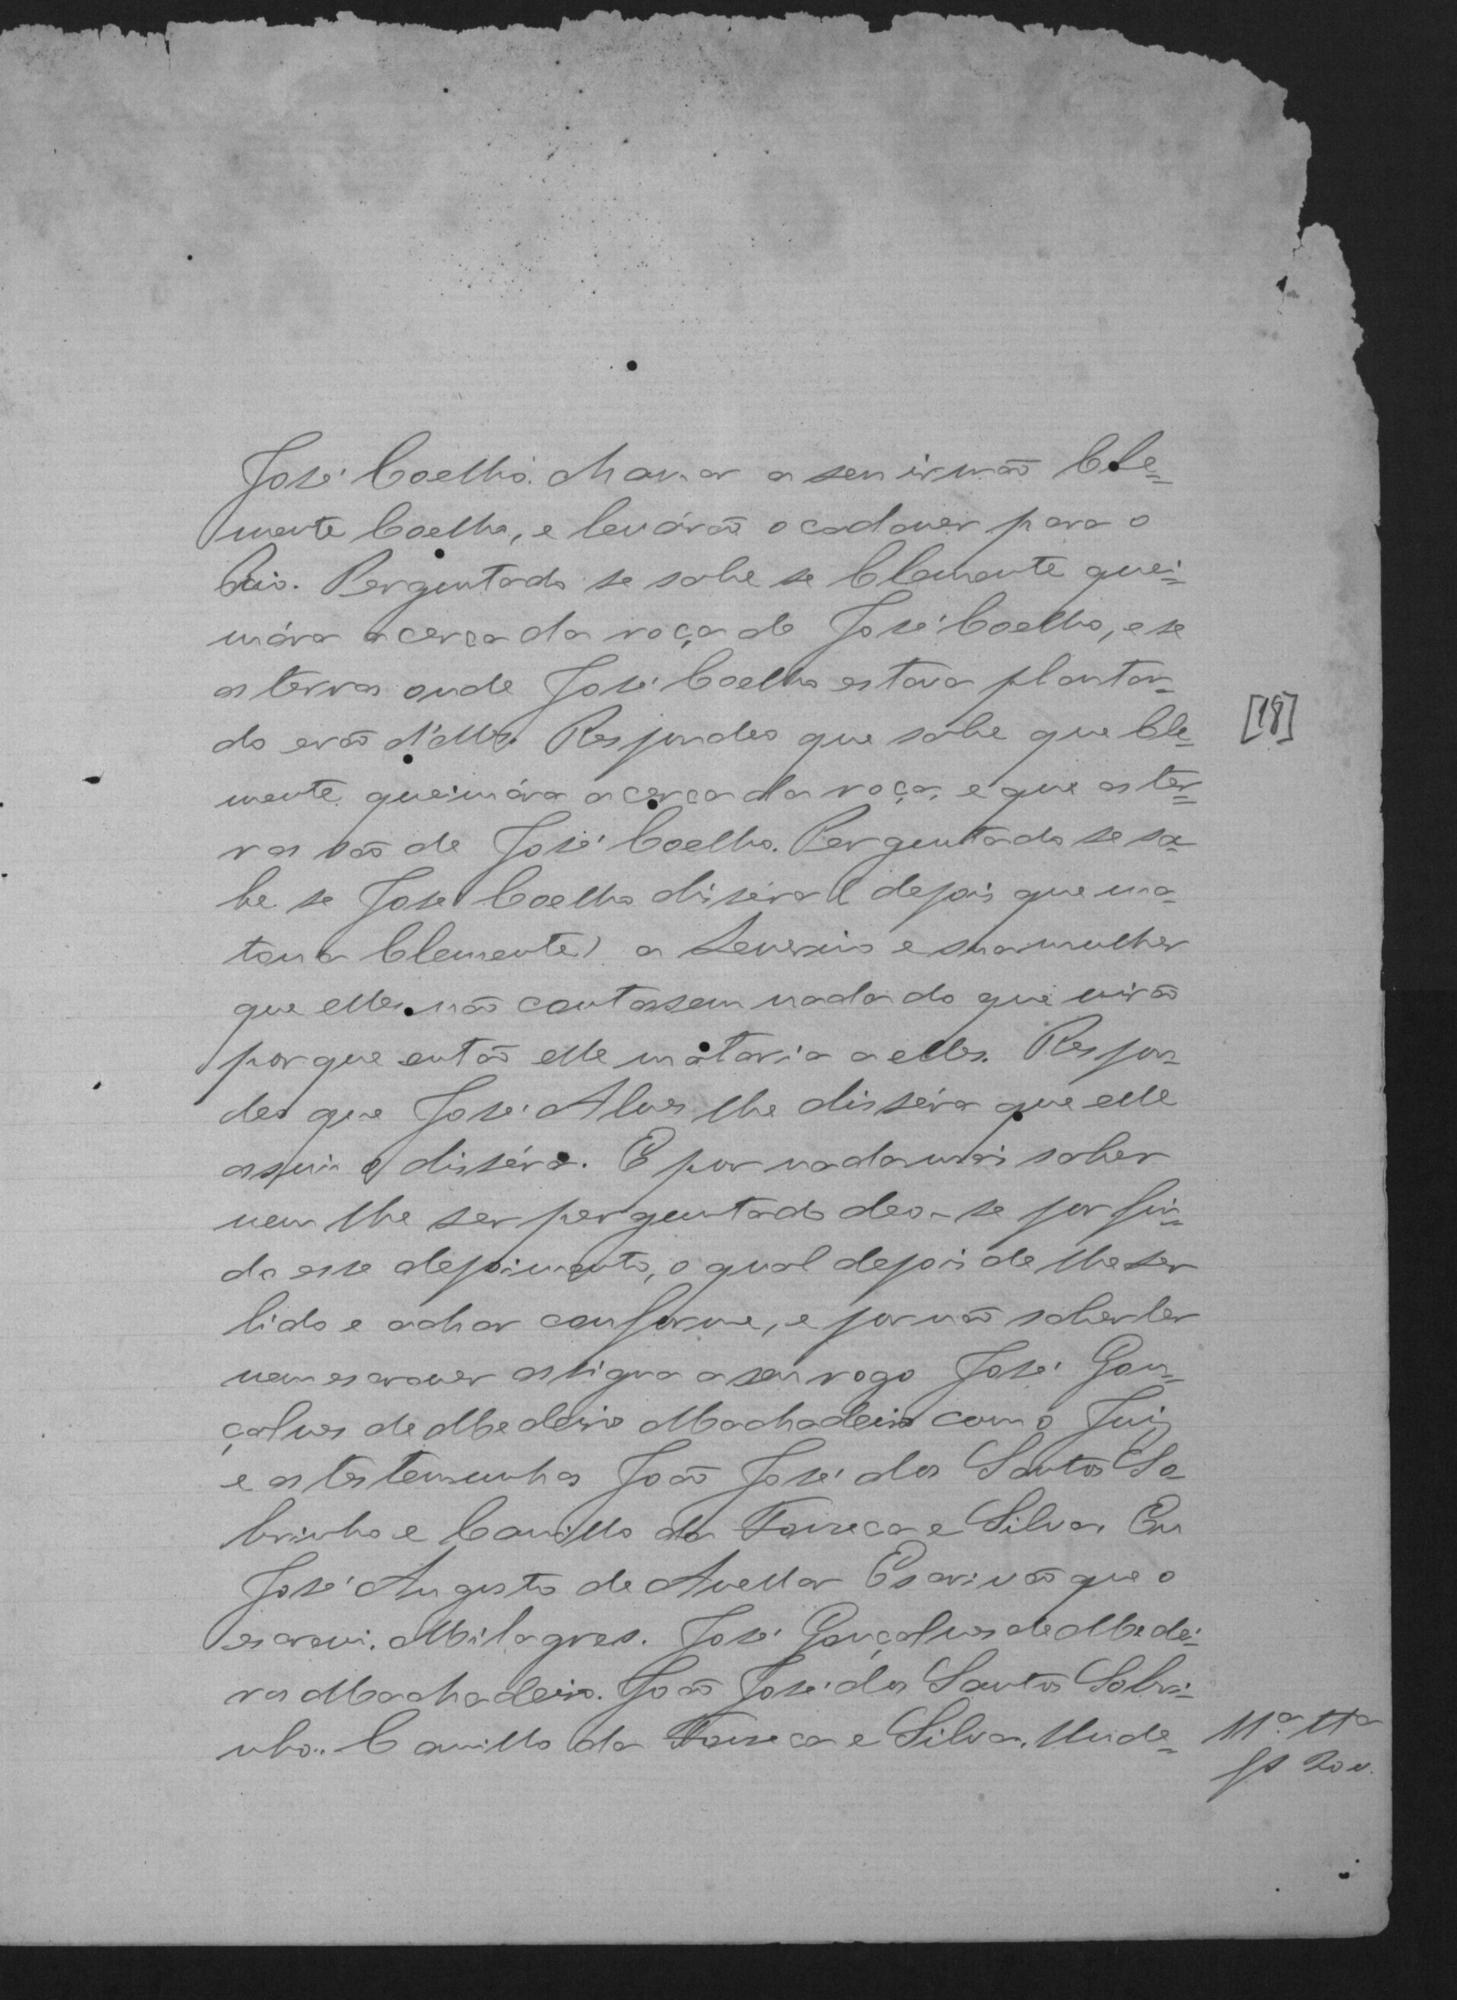 José Coelho chamar a seu irmão Cle=
mente Coelho, e levárão o cadaver para o
Rio. Perguntado se sabe se Clemente quei=
mára a cerca da roça de José Coelho, e se
as terras onde José Coelho estava plantan=
do erão d'elle. Respondeo que sabe que Cle=
mente queimára a cerca da roça, e que as ter=
ras são de José Coelho. Perguntado se sa=
be se José Coelho disséra (depois que ma=
tou a Clemente) a Severino e sua mulher
que elles não contassem nada do que virão
porque então elle mataria a elles. Respon=
deo que José Alves lhe disséra que elle
assim o disséra. E por nada mais saber
nem lhe ser perguntado deo-se por fin=
do esse depoimento, o qual depois de lhe ser
lido e achar conforme, e por não saber ler
nem escrever assigna a seu rogo José Gon=
çalves de Medeiro Machadeiro com o Juiz
e as testemunhas João José dos Santos So=
brinho e Camillo da Fonseca e Silva. Eu
José Augusto de Avellar Escrivão que o
escrevi. Milagres. José Gonçalves de Medei=
ros Machadeiro. João José dos Santos Sobri=
nho. Camillo da Fonseca e Silva. Unde=
[18]
11ª tta
fs 20 v.